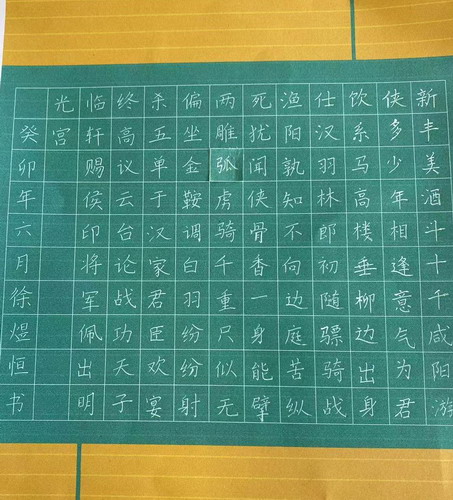 新丰美酒斗十千咸阳游
侠多少年相逢意气为君
饮系马高楼垂柳边出身
仕汉羽林郎初随骠骑战
渔阳孰知不向边庭苦纵
死犹闻侠骨香一身能擘
两雕弧虏骑千重只似无
偏坐金鞍调白羽纷纷射
杀五单于汉家君臣欢宴
终高议云台论战功天子
临轩赐侯印将军佩出明
光宫
癸卯年六月徐煜恒书